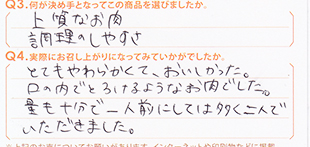 Q3.何が決め手となってこの商品を選びましたか。
上質なお肉
調理のしやすさ
Q4.実際にお召し上がりになってみていかがでしたか。
とてもやわらかくて、おいしかった。
口の内でとろけるようなお肉でした。
量も十分で一人前にしては多く二人で
いただきました。